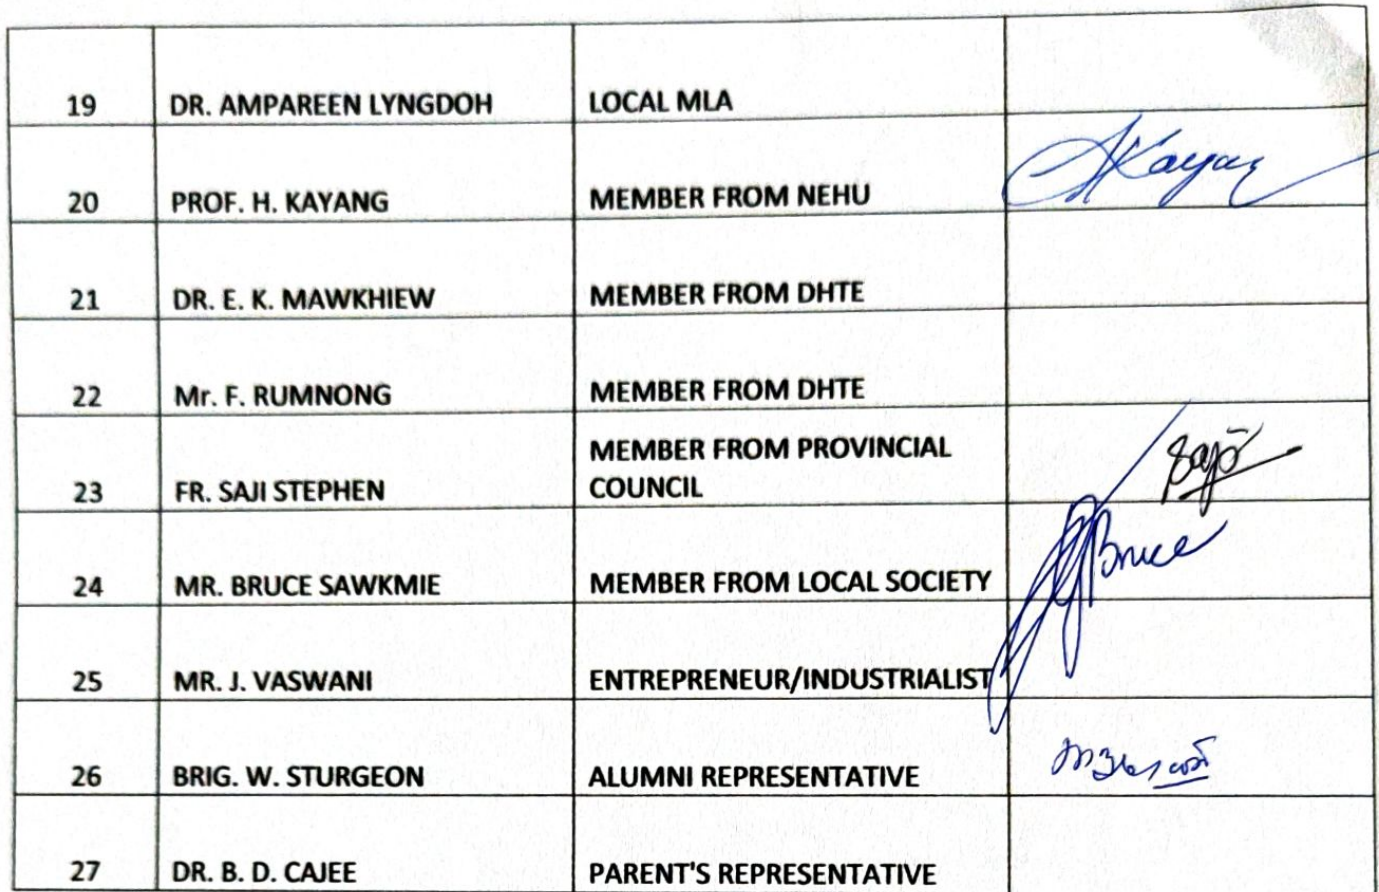 19 DR. AMPAREEN LYNGDOH LOCAL MLA
20 PROF. H. KAYANG MEMBER FROM NEHU Kayang
21 DR. E. K. MAWKHIEW MEMBER FROM DHTE
22 Mr. F. RUMNONG MEMBER FROM DHTE
MEMBER FROM PROVINCIAL
23 FR. SAJI STEPHEN COUNCIL Saji
24 MR. BRUCE SAWKMIE MEMBER FROM LOCAL SOCIETY Bruce
25 MR. J. VASWANI ENTREPRENEUR/INDUSTRIALIST
26 BRIG. W. STURGEON ALUMNI REPRESENTATIVE
27 DR. B. D. CAJEE PARENT'S REPRESENTATIVE